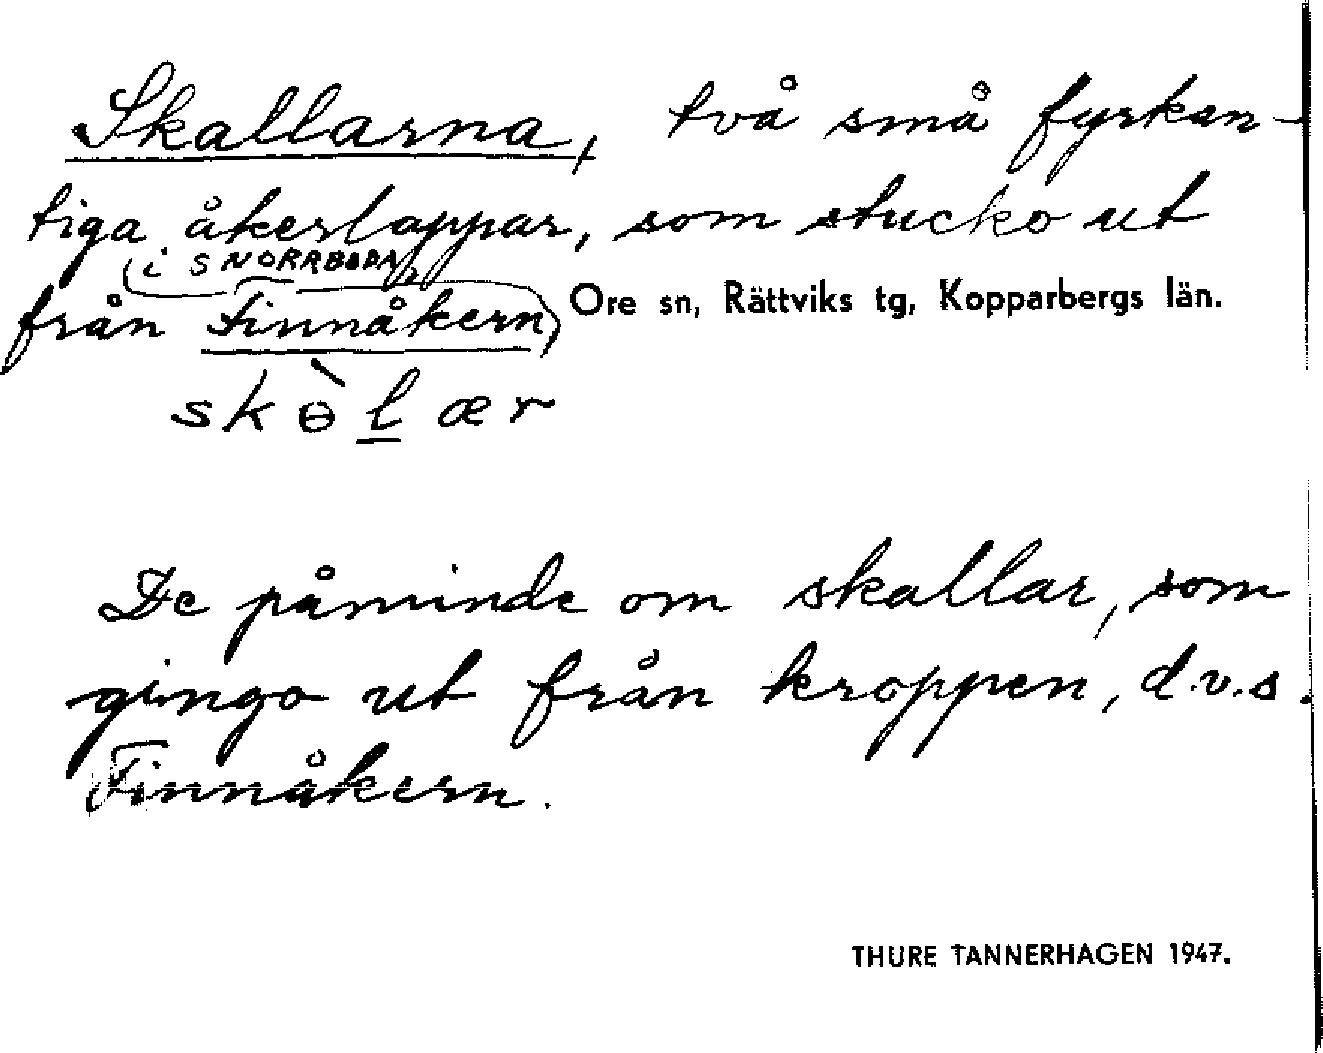 Skallarna, två små fyrkan-
tiga åkerlappar, som stucko ut
(i SNORRBODA)
från Finnåkern, Ore sn, Rättviks tg, Kopparbergs län.
skɵ̀l̲ær
De påminde om skallar, som
gingo ut från kroppen, d.v.s.
Finnåkern.
THURE TANNERHAGEN 1947.